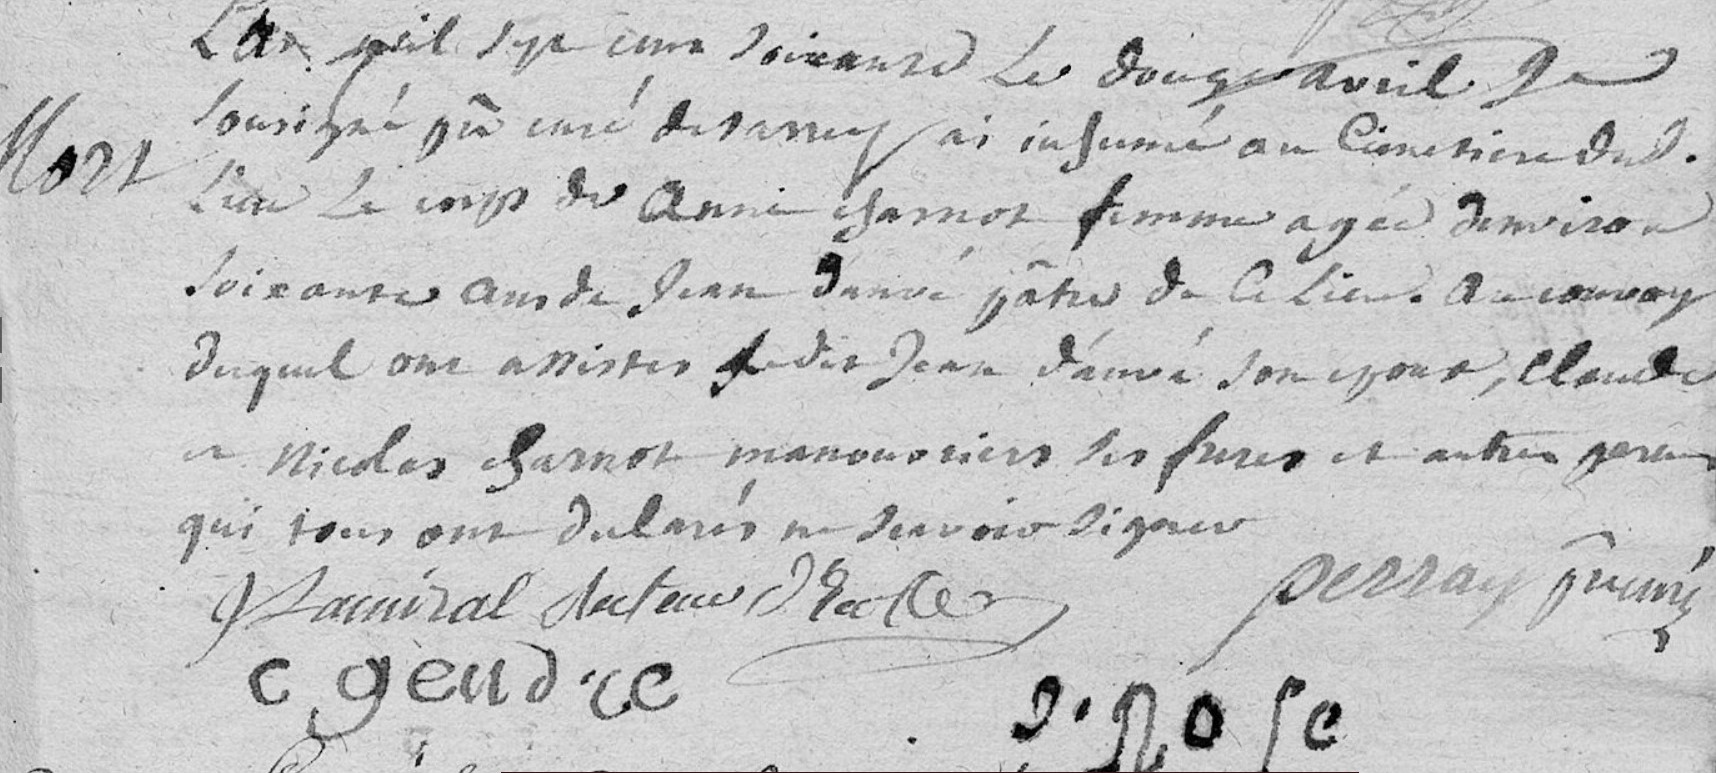 L'an mil sept cent soixante Le douze avril Je
Mort
sousigné ptre curé de sarrey ai inhumé au Cimetiere dud.
Lieu Le corps de Anne charnot femme agée denviron
soixante ans de Jean danvé pâtre de Ce Lieu. Au convoy
duquel ont assistes ledit Jean danvé son epoux, Claude
et Nicolas charnot manouvriers ses freres et autres
qui tous ont declarés ne scavoir signer
Lamiral Recteur d'Ecolle
perray ptre curé
c gendre